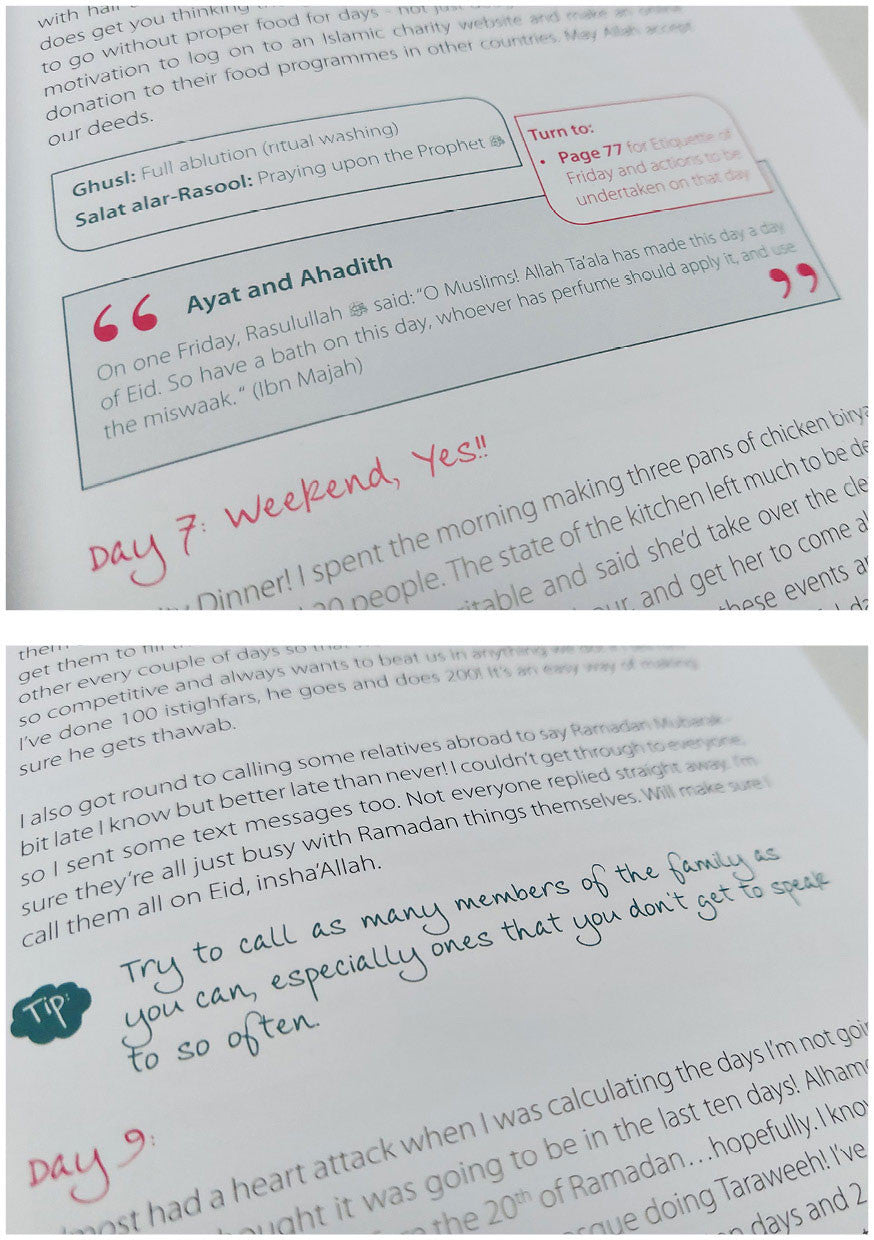 with half
does get you thinking
to go without proper food for days - not just
motivation to log on to an Islamic charity website and make an online
donation to their food programmes in other countries. May Allah accept
our deeds.
Ghusl: Full ablution (ritual washing)
Salat alar-Rasool: Praying upon the Prophet ﷺ
Turn to:
• Page 77 for Etiquette of
Friday and actions to be
undertaken on that day
Ayat and Ahadith
“ On one Friday, Rasulullah ﷺ said: “O Muslims! Allah Ta’ala has made this day a day
of Eid. So have a bath on this day, whoever has perfume should apply it, and use
the miswaak.“ (Ibn Majah) ”
Day 7: Weekend, Yes!!
Dinner! I spent the morning making three pans of chicken birya
people. The state of the kitchen left much to be de
table and said she’d take over the cle
and get her to come al
these events ar
them
get them to
other every couple of days so that
so competitive and always wants to beat us in anything we do.
I’ve done 100 istighfars, he goes and does 200! It’s an easy way of making
sure he gets thawab.
I also got round to calling some relatives abroad to say Ramadan Mubarak-
bit late I know but better late than never! I couldn’t get through to everyone,
so I sent some text messages too. Not everyone replied straight away. I’m
sure they’re all just busy with Ramadan things themselves. Will make sure I
call them all on Eid, insha’Allah.
Tip:
Try to call as many members of the family as
you can, especially ones that you don't get to speak
to so often.
Day 9:
most had a heart attack when I was calculating the days I’m not goin
ought it was going to be in the last ten days! Alham
the 20th of Ramadan...hopefully. I kno
doing Taraweeh! I’ve
days and 2